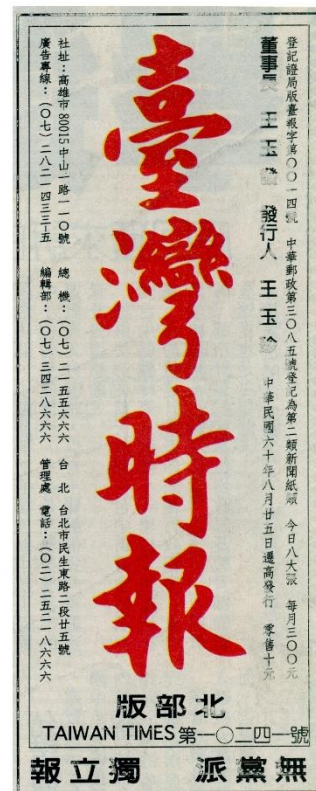 登記證局版臺報字第〇〇一四號 中華郵政第三〇八五號登記為第二類新聞紙類 今日八大張 每月三〇〇元
董事長 王玉發 發行人 王玉珍 中華民國六十年八月廿五日遷高發行 零售十元
臺灣時報
社址：高雄市80015中山一路一一〇號 總機：（〇七）二一五五六六六 台北 台北市民生東路二段廿五號
廣告專線：（〇七）二八二一四三三—五 編輯部：（〇七）三四二八六六六 管理處 電話：（〇二）二五二一八六六六
版部北
TAIWAN TIMES 第一〇二四一號
報立獨 派黨無